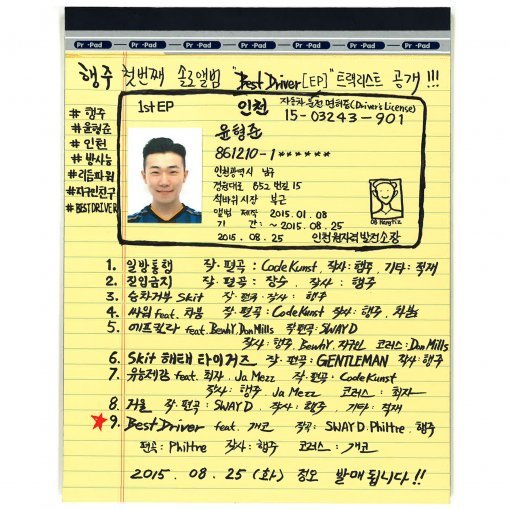 Pro-Pad Pro-Pad Pro-Pad Pro-Pad Pro-Pad Pro-Pad Pro-Pad
행주 첫번째 솔로앨범 "Best Driver [EP]" 트랙리스트 공개 !!!
# 행주
# 윤형준
# 인천
# 방사능
# 리듬파워
# 지구인친구
# BEST DRIVER
1st EP
인천
자동차 운전 면허증 (Driver's License)
15-03243-901
윤형준
861210-1******
인천광역시 남구
경원대로 652번길 15
석바위시장 부근
앨범 제작 2015.01.08
기 간 : ~ 2015.08.25
2015.08.25 인천원자력발전소장
1. 일방통행 작·편곡 : Code Kunst, 작사 : 행주, 기타 : 적재
2. 진입금지 작·편곡 : 장수, 작사 : 행주
3. 승차거부 Skit 작·편곡·작사 : 행주
4. 싸워 feat. 차붐 작·편곡 : Code Kunst 작사 : 행주, 차붐
5. 에프킬라 feat. BewhY, Don Mills 작·편곡 : SWAY D
작사 : 행주, BewhY, 지구인 코러스 : Don Mills
6. Skit 해태 타이거즈 작·편곡 : GENTLEMAN 작사 : 행주
7. 유능제강 feat. 최자, Ja Mezz 작·편곡 : Code Kunst
작사 : 행주, Ja Mezz 코러스 : 최자
8. 거울 작·편곡 : SWAY D, 작사 : 행주, 기타 : 적재
9. Best Driver feat. 개코 작곡 : SWAY D, Philtre, 행주
편곡 : Philtre 작사 : 행주 코러스 : 개코
2015. 08. 25 (화) 정오 발매 됩니다 !!